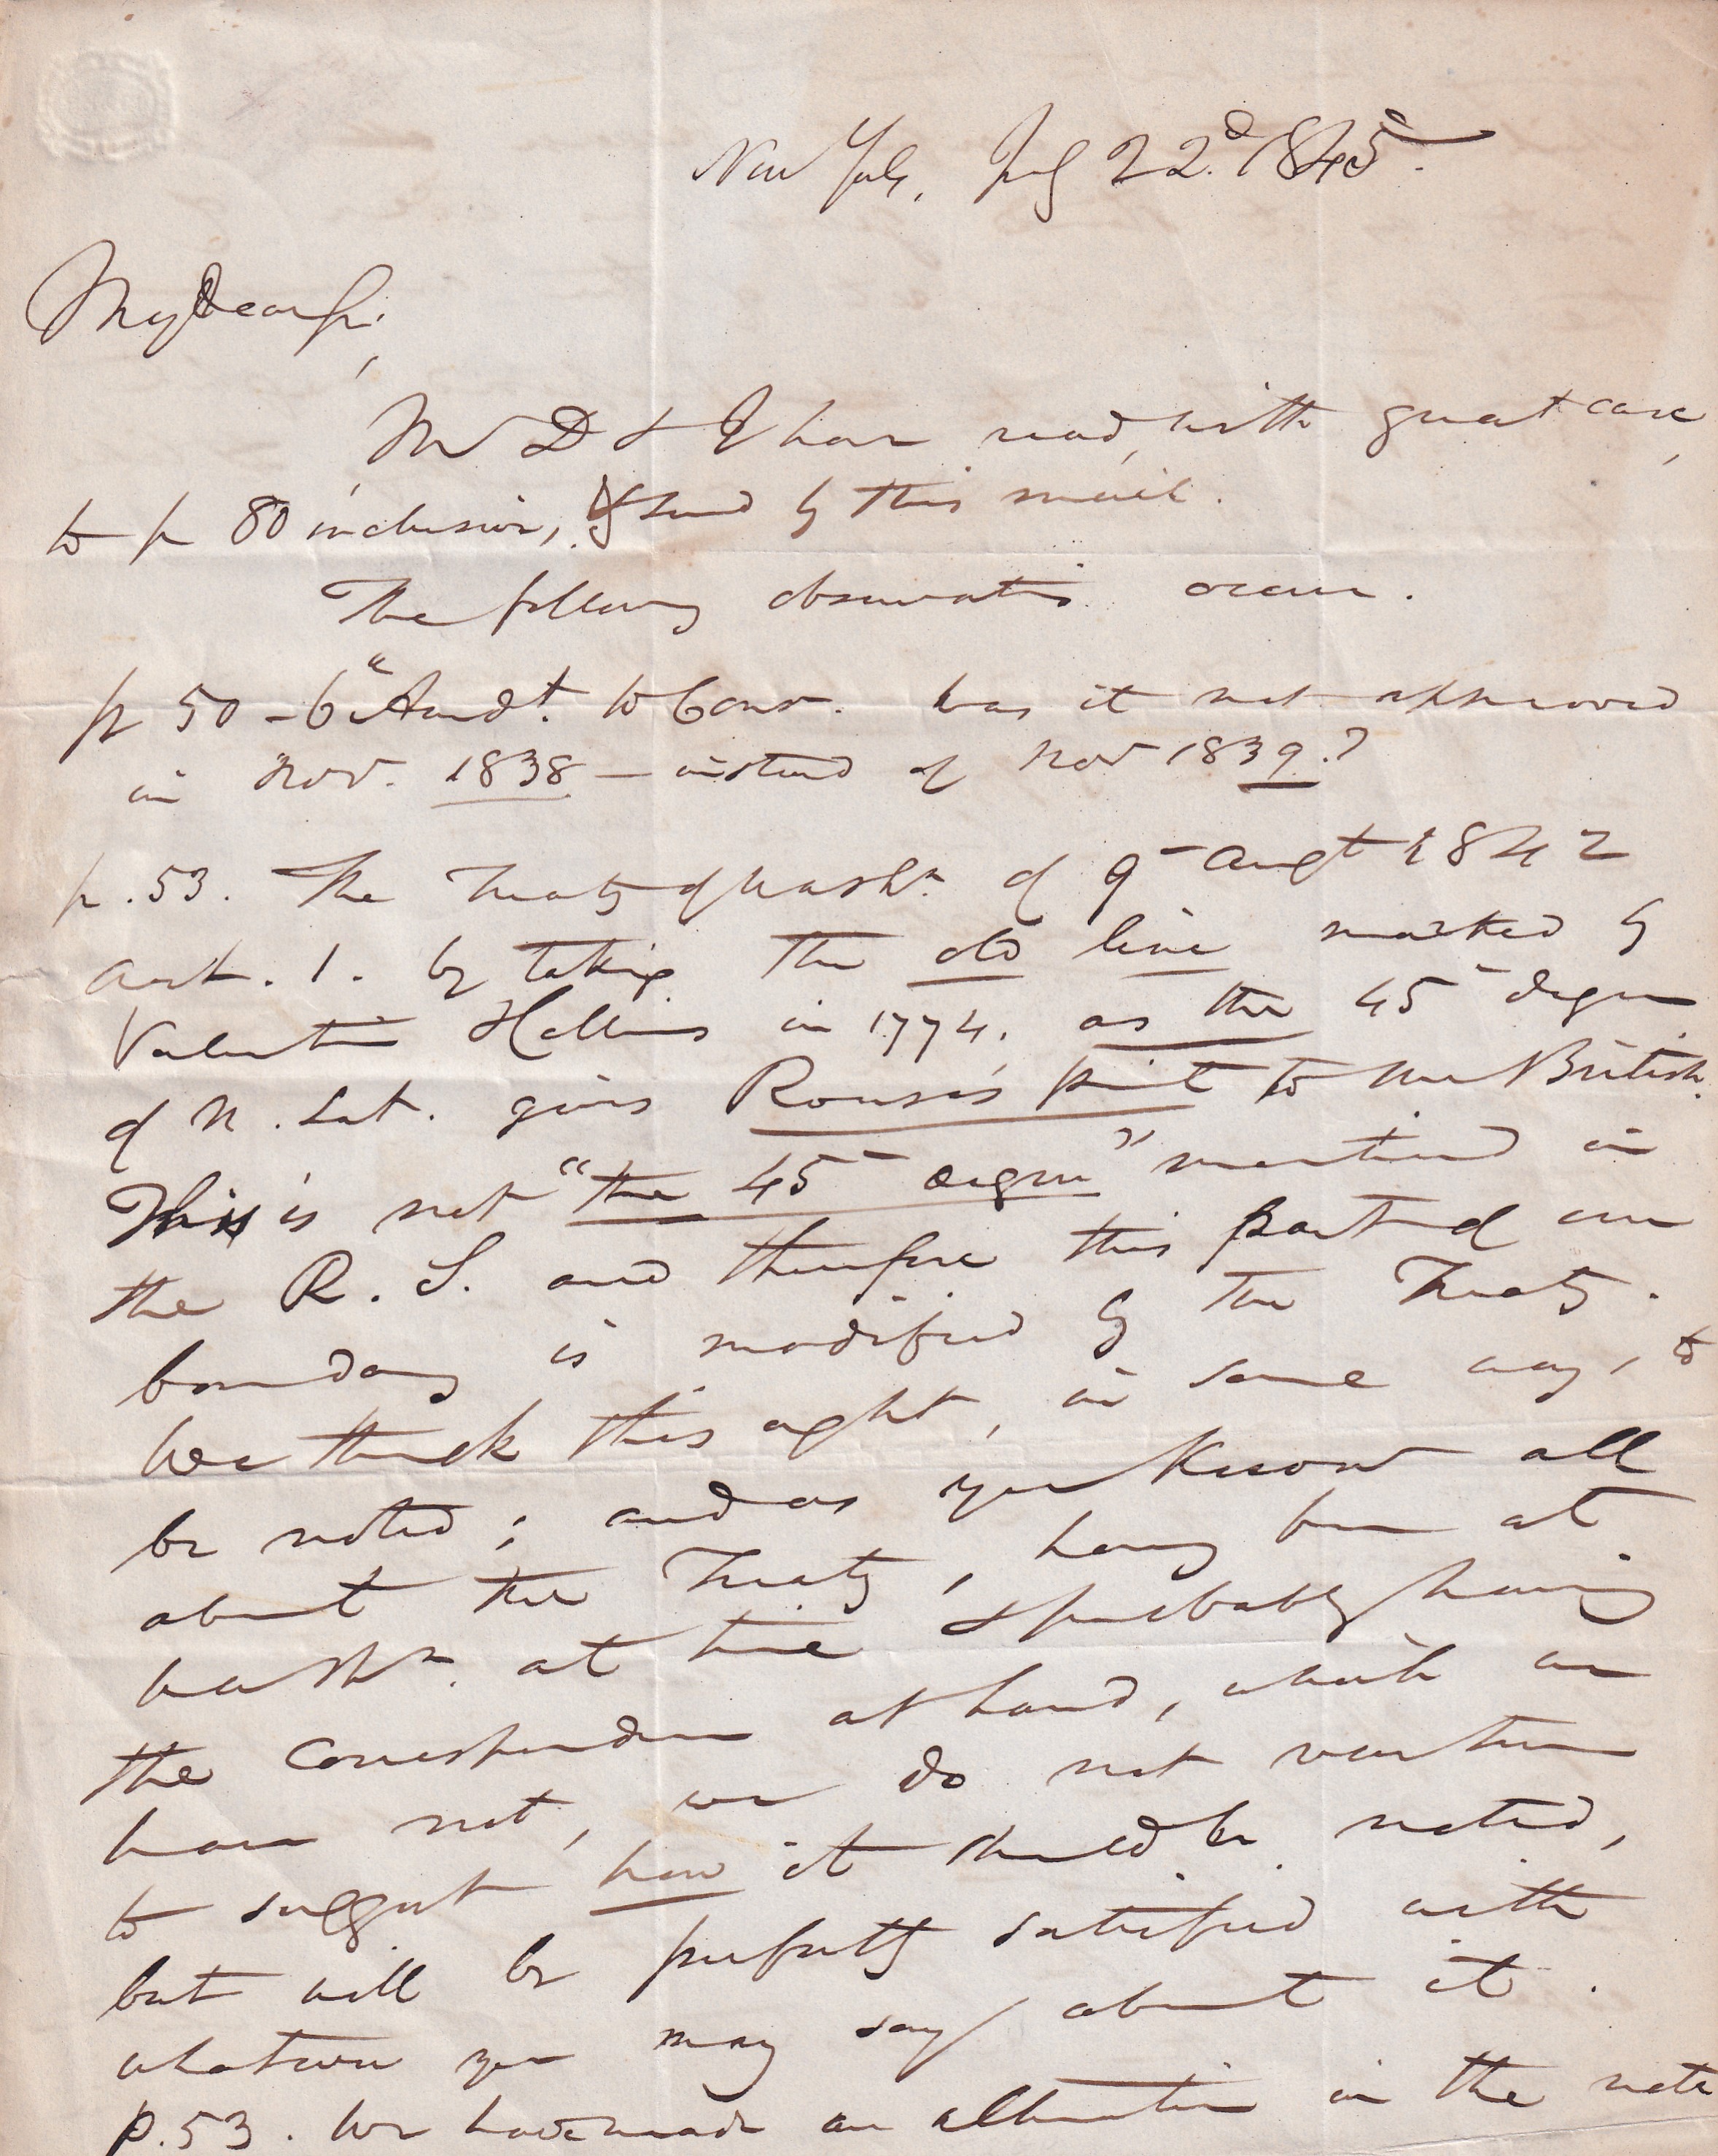 New York, July 22.d 1845.
My Dear Sir,
Mr D & I have read, with great care,
to p 80 inclusive, & send by this mail.
The following observations occur.
p 50 - 6" Amdt. to Cons. was it not approved
in Nov. 1838 — instead of Nov 1839.?
p. 53. The Treaty of Washn. of 9 Augt 1842
Art. 1. by taking the old line marked by
Valentine Collins in 1774. as the 45 degree
of N. Lat. gives Rouse's point to the British.
This is not "the 45 degree" mentioned in
the R. S. and therefore this part of our
boundary is modified by the Treaty.
We think this ought, in some way, to
be noted; and as you know all
about the Treaty, having been at
Washn. at time & probably having
the correspondence at hand, which we
have not, we do not venture
to suggest how it should be noted,
but will be perfectly satisfied with
whatever you may say about it.
p. 53. We have made an alteration in the note